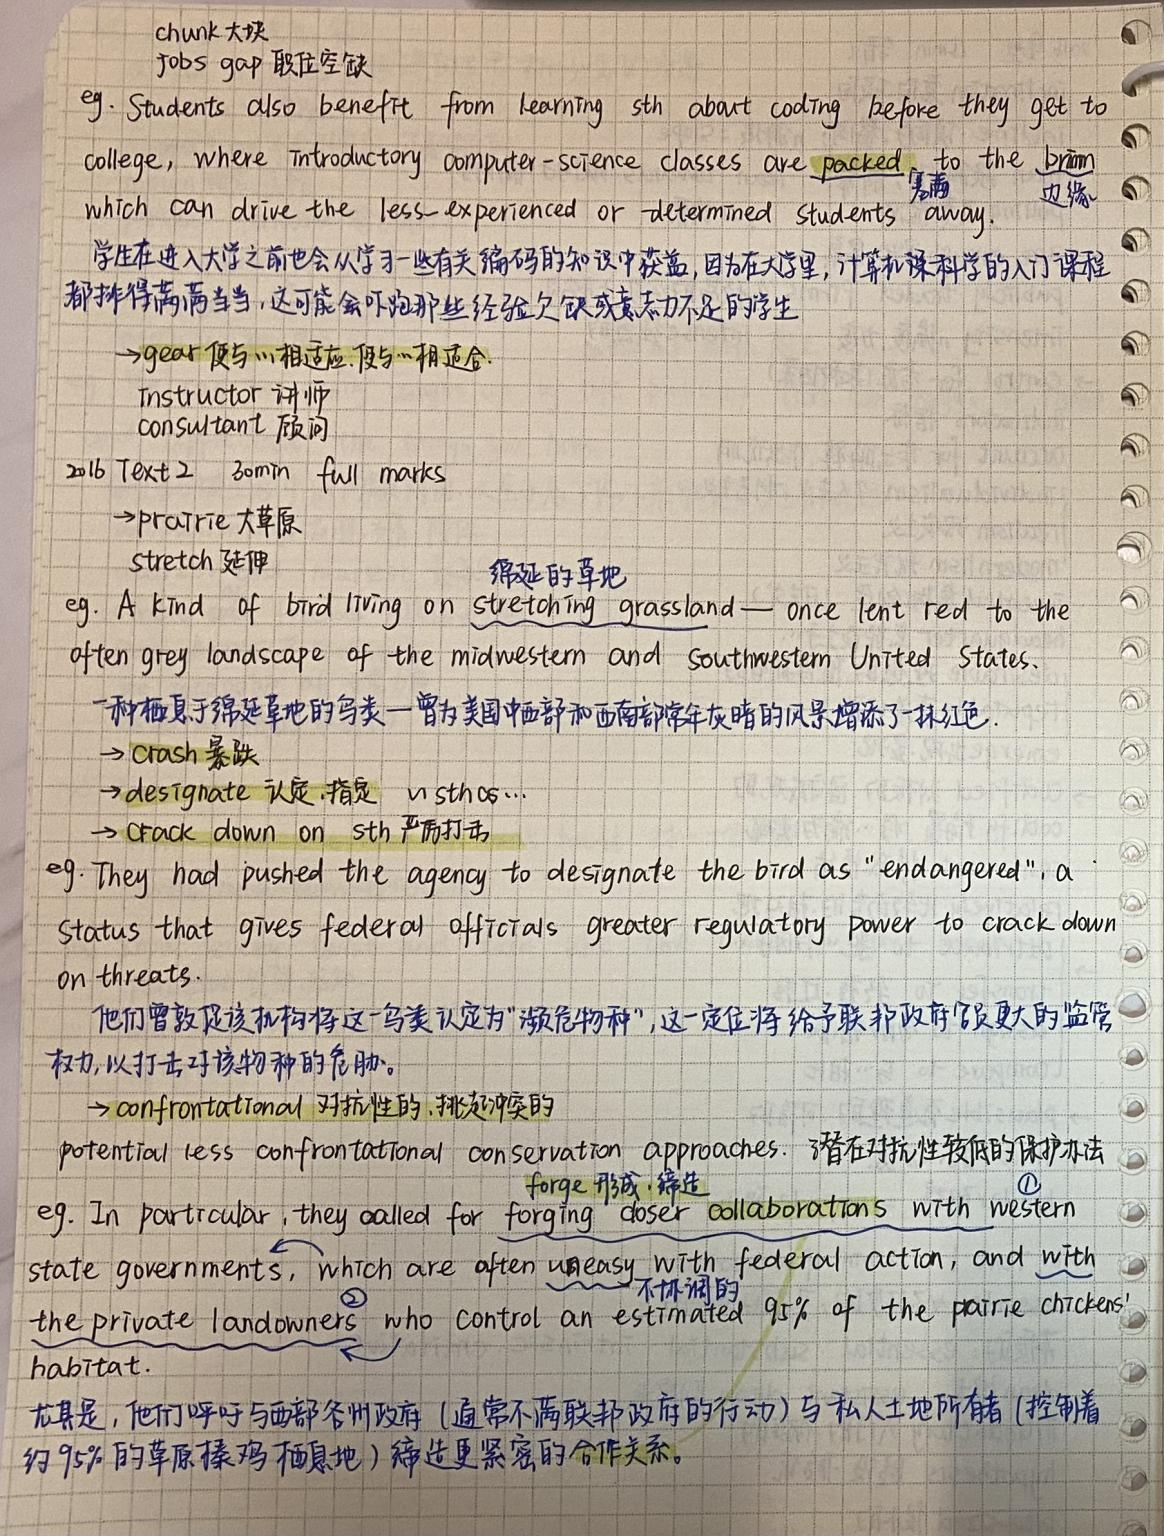 chunk 大块
jobs gap 职位空缺
eg. Students also benefit from learning sth about coding before they get to
college, where introductory computer-science classes are packed to the brim
塞满 边缘
which can drive the less-experienced or -determined students away.
学生在进入大学之前也会从学习一些有关编码的知识中获益,因为在大学里,计算机课科学的入门课程
都排得满满当当,这可能会吓跑那些经验欠缺或意志力不足的学生
→gear 使与…相适应.使与…相适合.
instructor 讲师
consultant 顾问
2016 Text 2 30min full marks
→prairie 大草原
stretch 延伸
绵延的草地
eg. A kind of bird living on stretching grassland — once lent red to the
often grey landscape of the midwestern and southwestern United States.
一种栖息于绵延草地的鸟类—曾为美国中西部和西南部常年灰暗的风景增添了一抹红色.
→ crash 暴跌
→designate 认定.指定 ~ sth as…
→ crack down on sth 严厉打击
eg. They had pushed the agency to designate the bird as "endangered", a
status that gives federal officials greater regulatory power to crack down
on threats.
他们曾敦促该机构将这一鸟类认定为"濒危物种",这一定位将给予联邦政府官员更大的监管
权力,以打击对该物种的危胁。
→confrontational 对抗性的.挑起冲突的
potential less confrontational conservation approaches. 潜在对抗性较低的保护办法
forge 形成.缔造 ①
eg. In particular, they called for forging closer collaborations with western
state governments, which are often uneasy with federal action, and with
② 不协调的
the private landowners who control an estimated 95% of the prairie chickens'
habitat.
尤其是,他们呼吁与西部各州政府(通常不满联邦政府的行动)与私人土地所有者(控制着
约95%的草原榛鸡栖息地)缔造更紧密的合作关系。